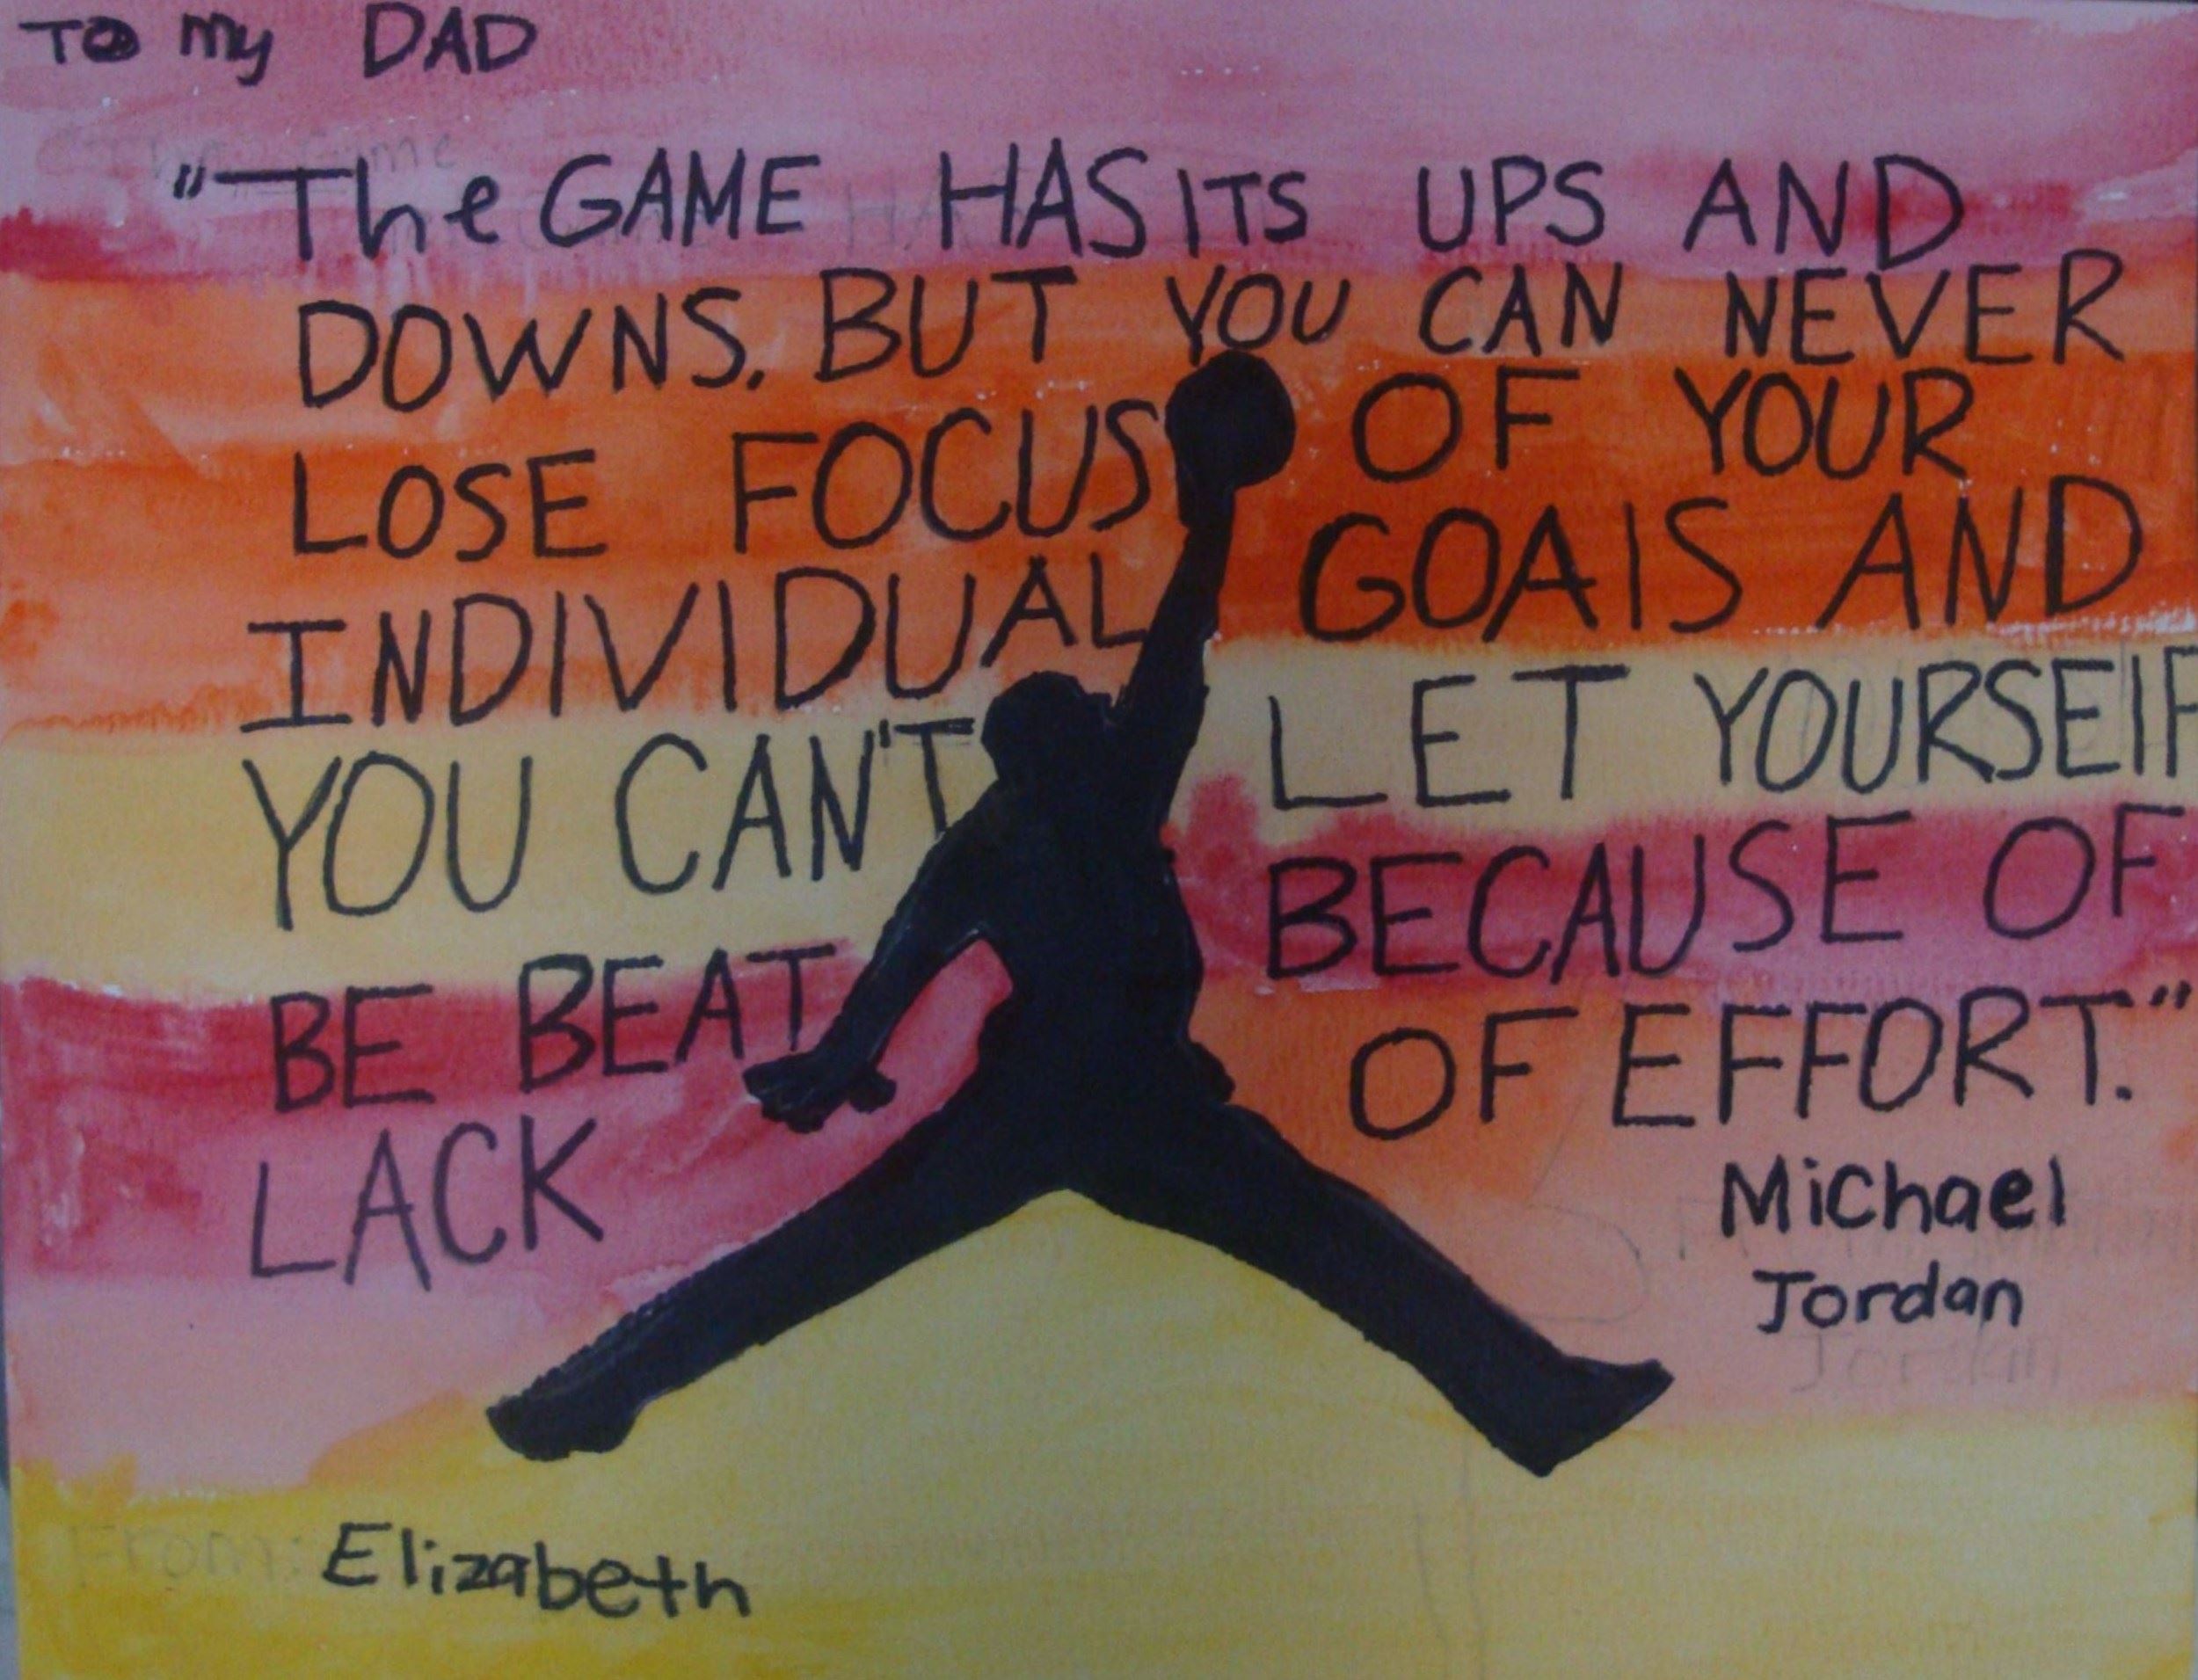 To my DAD
"The GAME HAS ITS UPS AND
DOWNS. BUT YOU CAN NEVER
LOSE FOCUS OF YOUR
INDIVIDUAL GOAlS AND
YOU CAN'T LET YOURSElF
BE BEAT BECAUSE OF
LACK OF EFFORT."
Michael
Jordan
From: Elizabeth